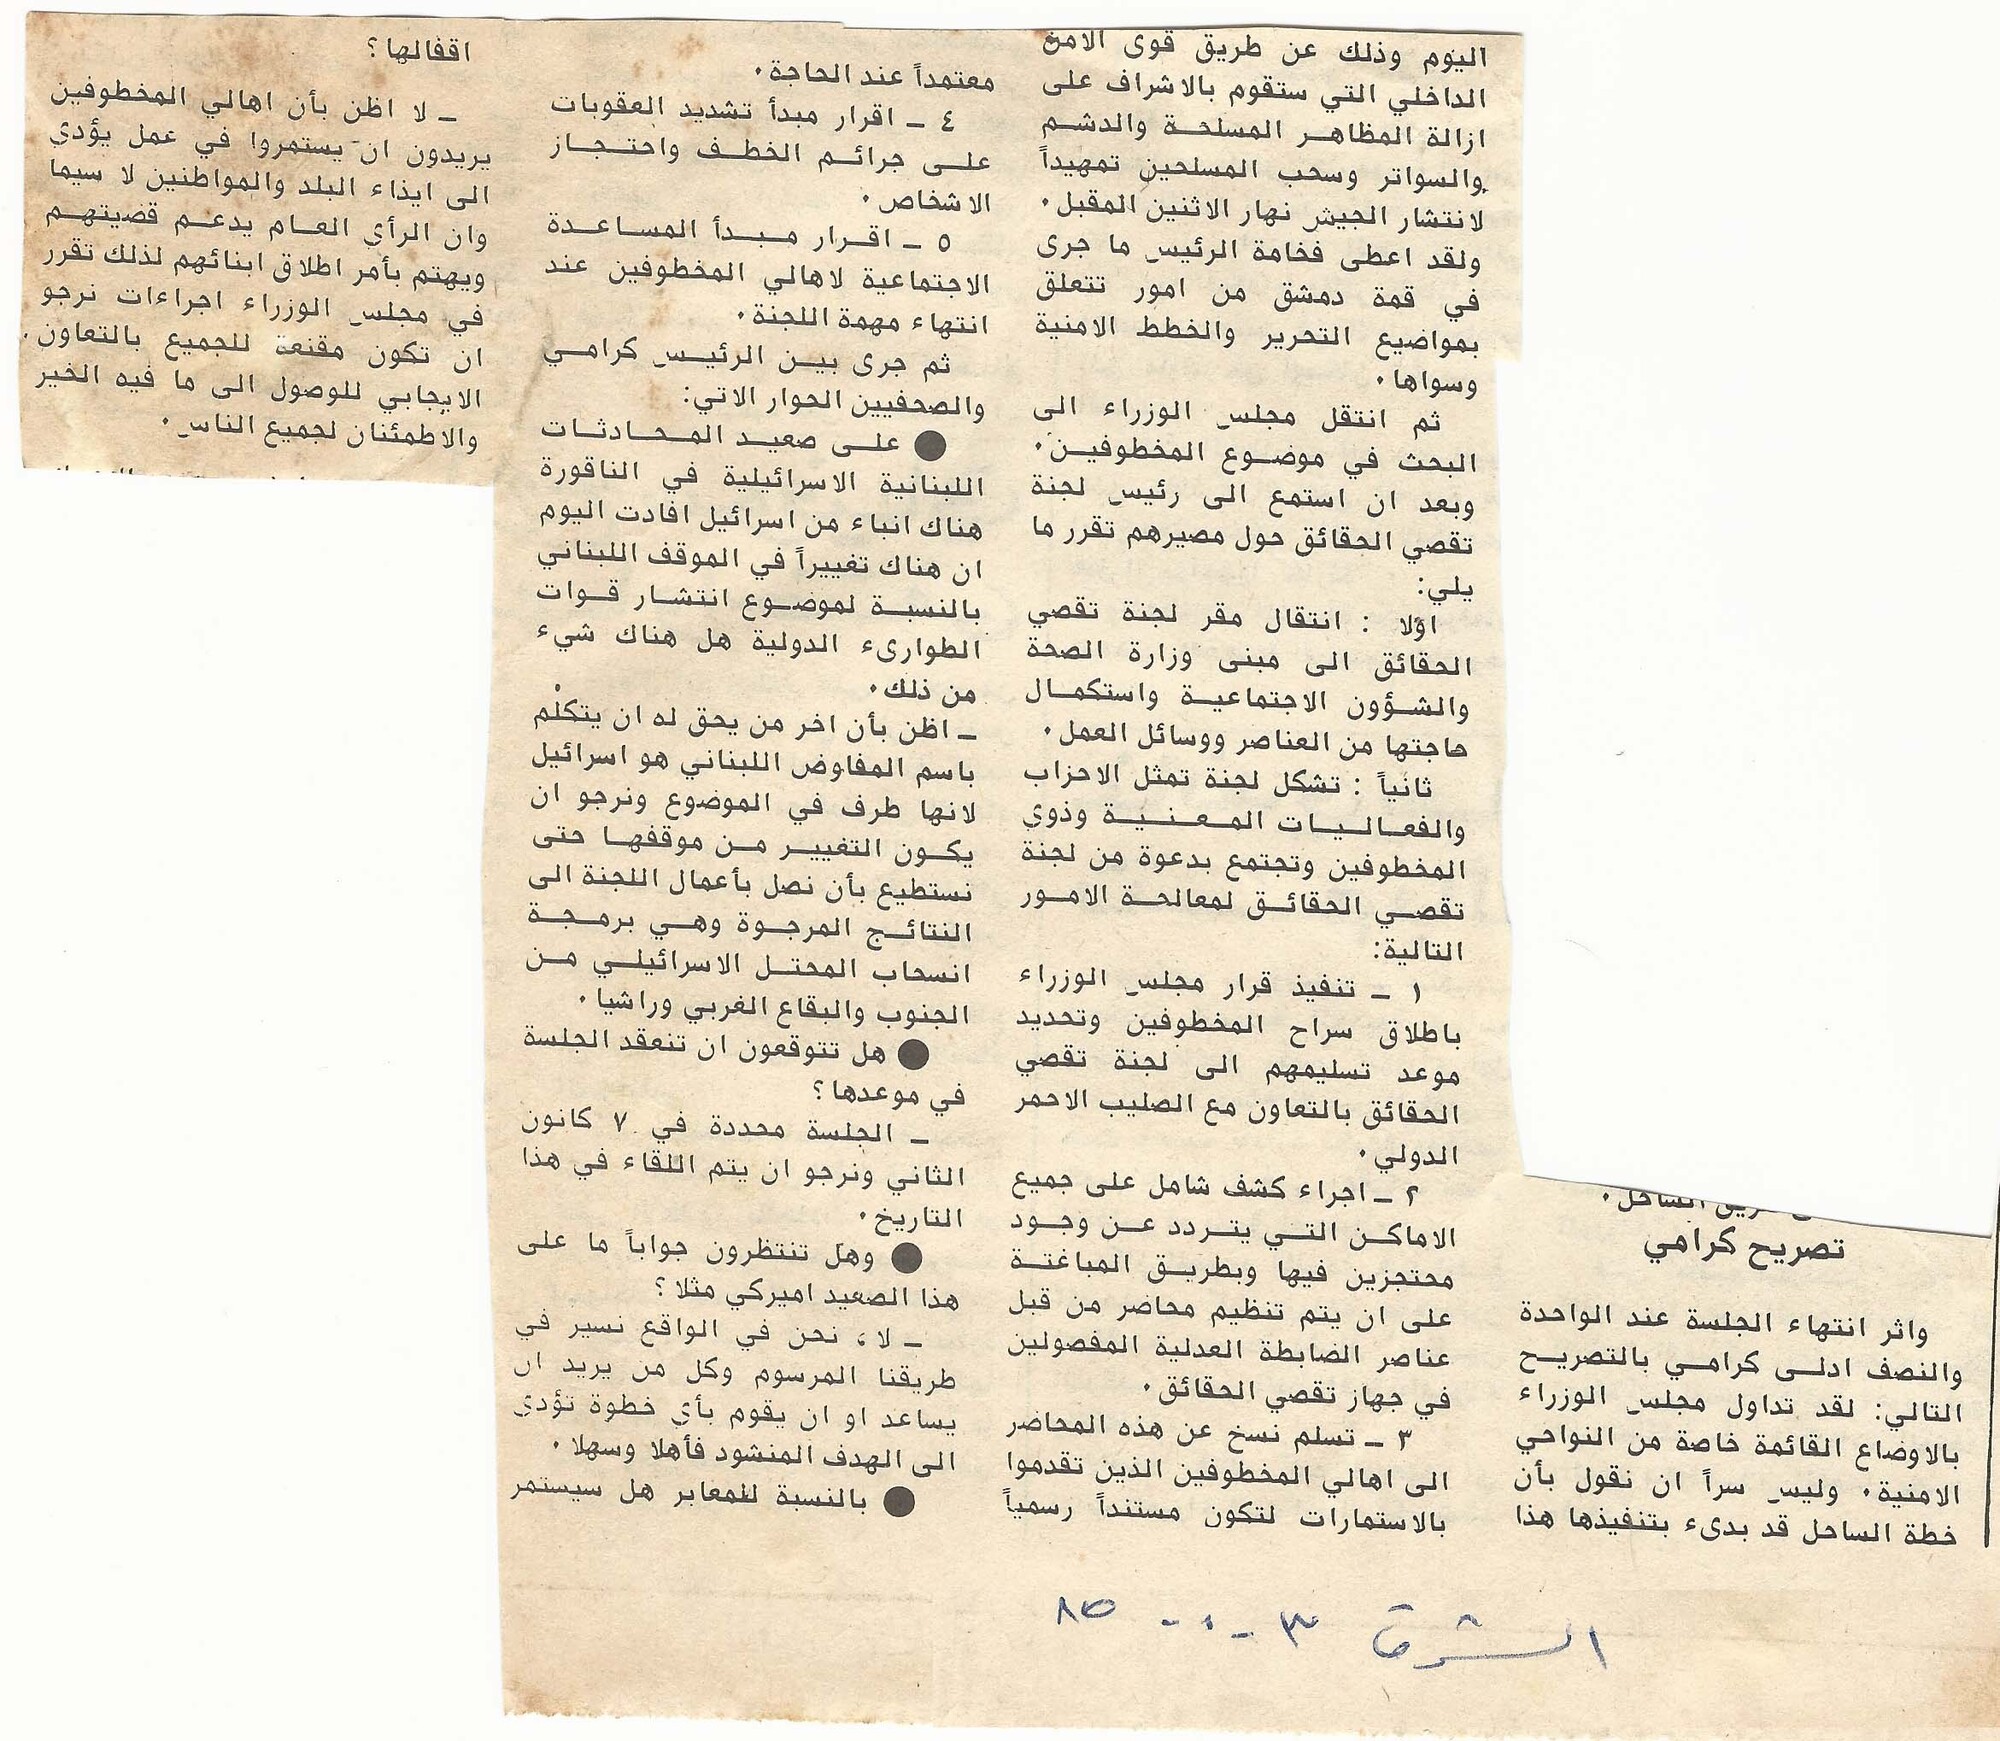 الساحل.
تصريح كرامي
واثر انتهاء الجلسة عند الواحدة
والنصف ادلى كرامي بالتصريح
التالي: لقد تداول مجلس الوزراء
بالاوضاع القائمة خاصة من النواحي
الامنية. وليس سراً ان نقول بأن
خطة الساحل قد بدىء بتنفيذها هذا
اليوم وذلك عن طريق قوى الامن
الداخلي التي ستقوم بالاشراف على
ازالة المظاهر المسلحة والدشم
والسواتر وسحب المسلحين تمهيداً
لانتشار الجيش نهار الاثنين المقبل.
ولقد اعطى فخامة الرئيس ما جرى
في قمة دمشق من امور تتعلق
بمواضيع التحرير والخطط الامنية
وسواها.
ثم انتقل مجلس الوزراء الى
البحث في موضوع المخطوفين.
وبعد ان استمع الى رئيس لجنة
تقصي الحقائق حول مصيرهم تقرر ما
يلي:
اولا : انتقال مقر لجنة تقصي
الحقائق الى مبنى وزارة الصحة
والشؤون الاجتماعية واستكمال
حاجتها من العناصر ووسائل العمل.
ثانياً : تشكل لجنة تمثل الاحزاب
والفعاليات المعنية وذوي
المخطوفين وتجتمع بدعوة من لجنة
تقصي الحقائق لمعالحة الامور
التالية:
١ - تنفيذ قرار مجلس الوزراء
باطلاق سراح المخطوفين وتحديد
موعد تسليمهم الى لجنة تقصي
الحقائق بالتعاون مع الصليب الاحمر
الدولي.
٢ - اجراء كشف شامل على جميع
الاماكن التي يتردد عن وجود
محتجزين فيها وبطريق المباغتة
على ان يتم تنظيم محاضر من قبل
عناصر الضابطة العدلية المفصولين
في جهاز تقصي الحقائق.
٣ - تسلم نسخ عن هذه المحاضر
الى اهالي المخطوفين الذين تقدموا
بالاستمارات لتكون مستنداً رسمياً
معتمداً عند الحاجة.
٤ - اقرار مبدأ تشديد العقوبات
على جرائم الخطف واحتجاز
الاشخاص.
٥ - اقرار مبدأ المساعدة
الاجتماعية لاهالي المخطوفين عند
انتهاء مهمة اللجنة.
ثم جرى بين الرئيس كرامي
والصحفيين الحوار الاتي:
● على صعيد المحادثات
اللبنانية الاسرائيلية في الناقورة
هناك انباء من اسرائيل افادت اليوم
ان هناك تغييراً في الموقف اللبناني
بالنسبة لموضوع انتشار قوات
الطوارىء الدولية هل هناك شيء
من ذلك.
- اظن بأن اخر من يحق له ان يتكلم
باسم المفاوض اللبناني هو اسرائيل
لانها طرف في الموضوع ونرجو ان
يكون التغيير من موقفها حتى
نستطيع بأن نصل بأعمال اللجنة الى
النتائج المرجوة وهي برمجة
انسحاب المحتل الاسرائيلي من
الجنوب والبقاع الغربي وراشيا.
● هل تتوقعون ان تنعقد الجلسة
في موعدها؟
- الجلسة محددة في ٧ كانون
الثاني ونرجو ان يتم اللقاء في هذا
التاريخ.
● وهل تنتظرون جواباً ما على
هذا الصعيد اميركي مثلا؟
- لا، نحن في الواقع نسير في
طريقنا المرسوم وكل من يريد ان
يساعد او ان يقوم بأي خطوة تؤدي
الى الهدف المنشود فأهلا وسهلا.
● بالنسبة للمعابر هل سيستمر
اقفالها؟
- لا اظن بأن اهالي المخطوفين
يريدون ان يستمروا في عمل يؤدي
الى ايذاء البلد والمواطنين لا سيما
وان الرأي العام يدعم قضيتهم
ويهتم بأمر اطلاق ابنائهم لذلك تقرر
في مجلس الوزراء اجراءات نرجو
ان تكون مقنعة للجميع بالتعاون
الايجابي للوصول الى ما فيه الخير
والاطمئنان لجميع الناس.
الشرق ٣ - ١ - ٨٥